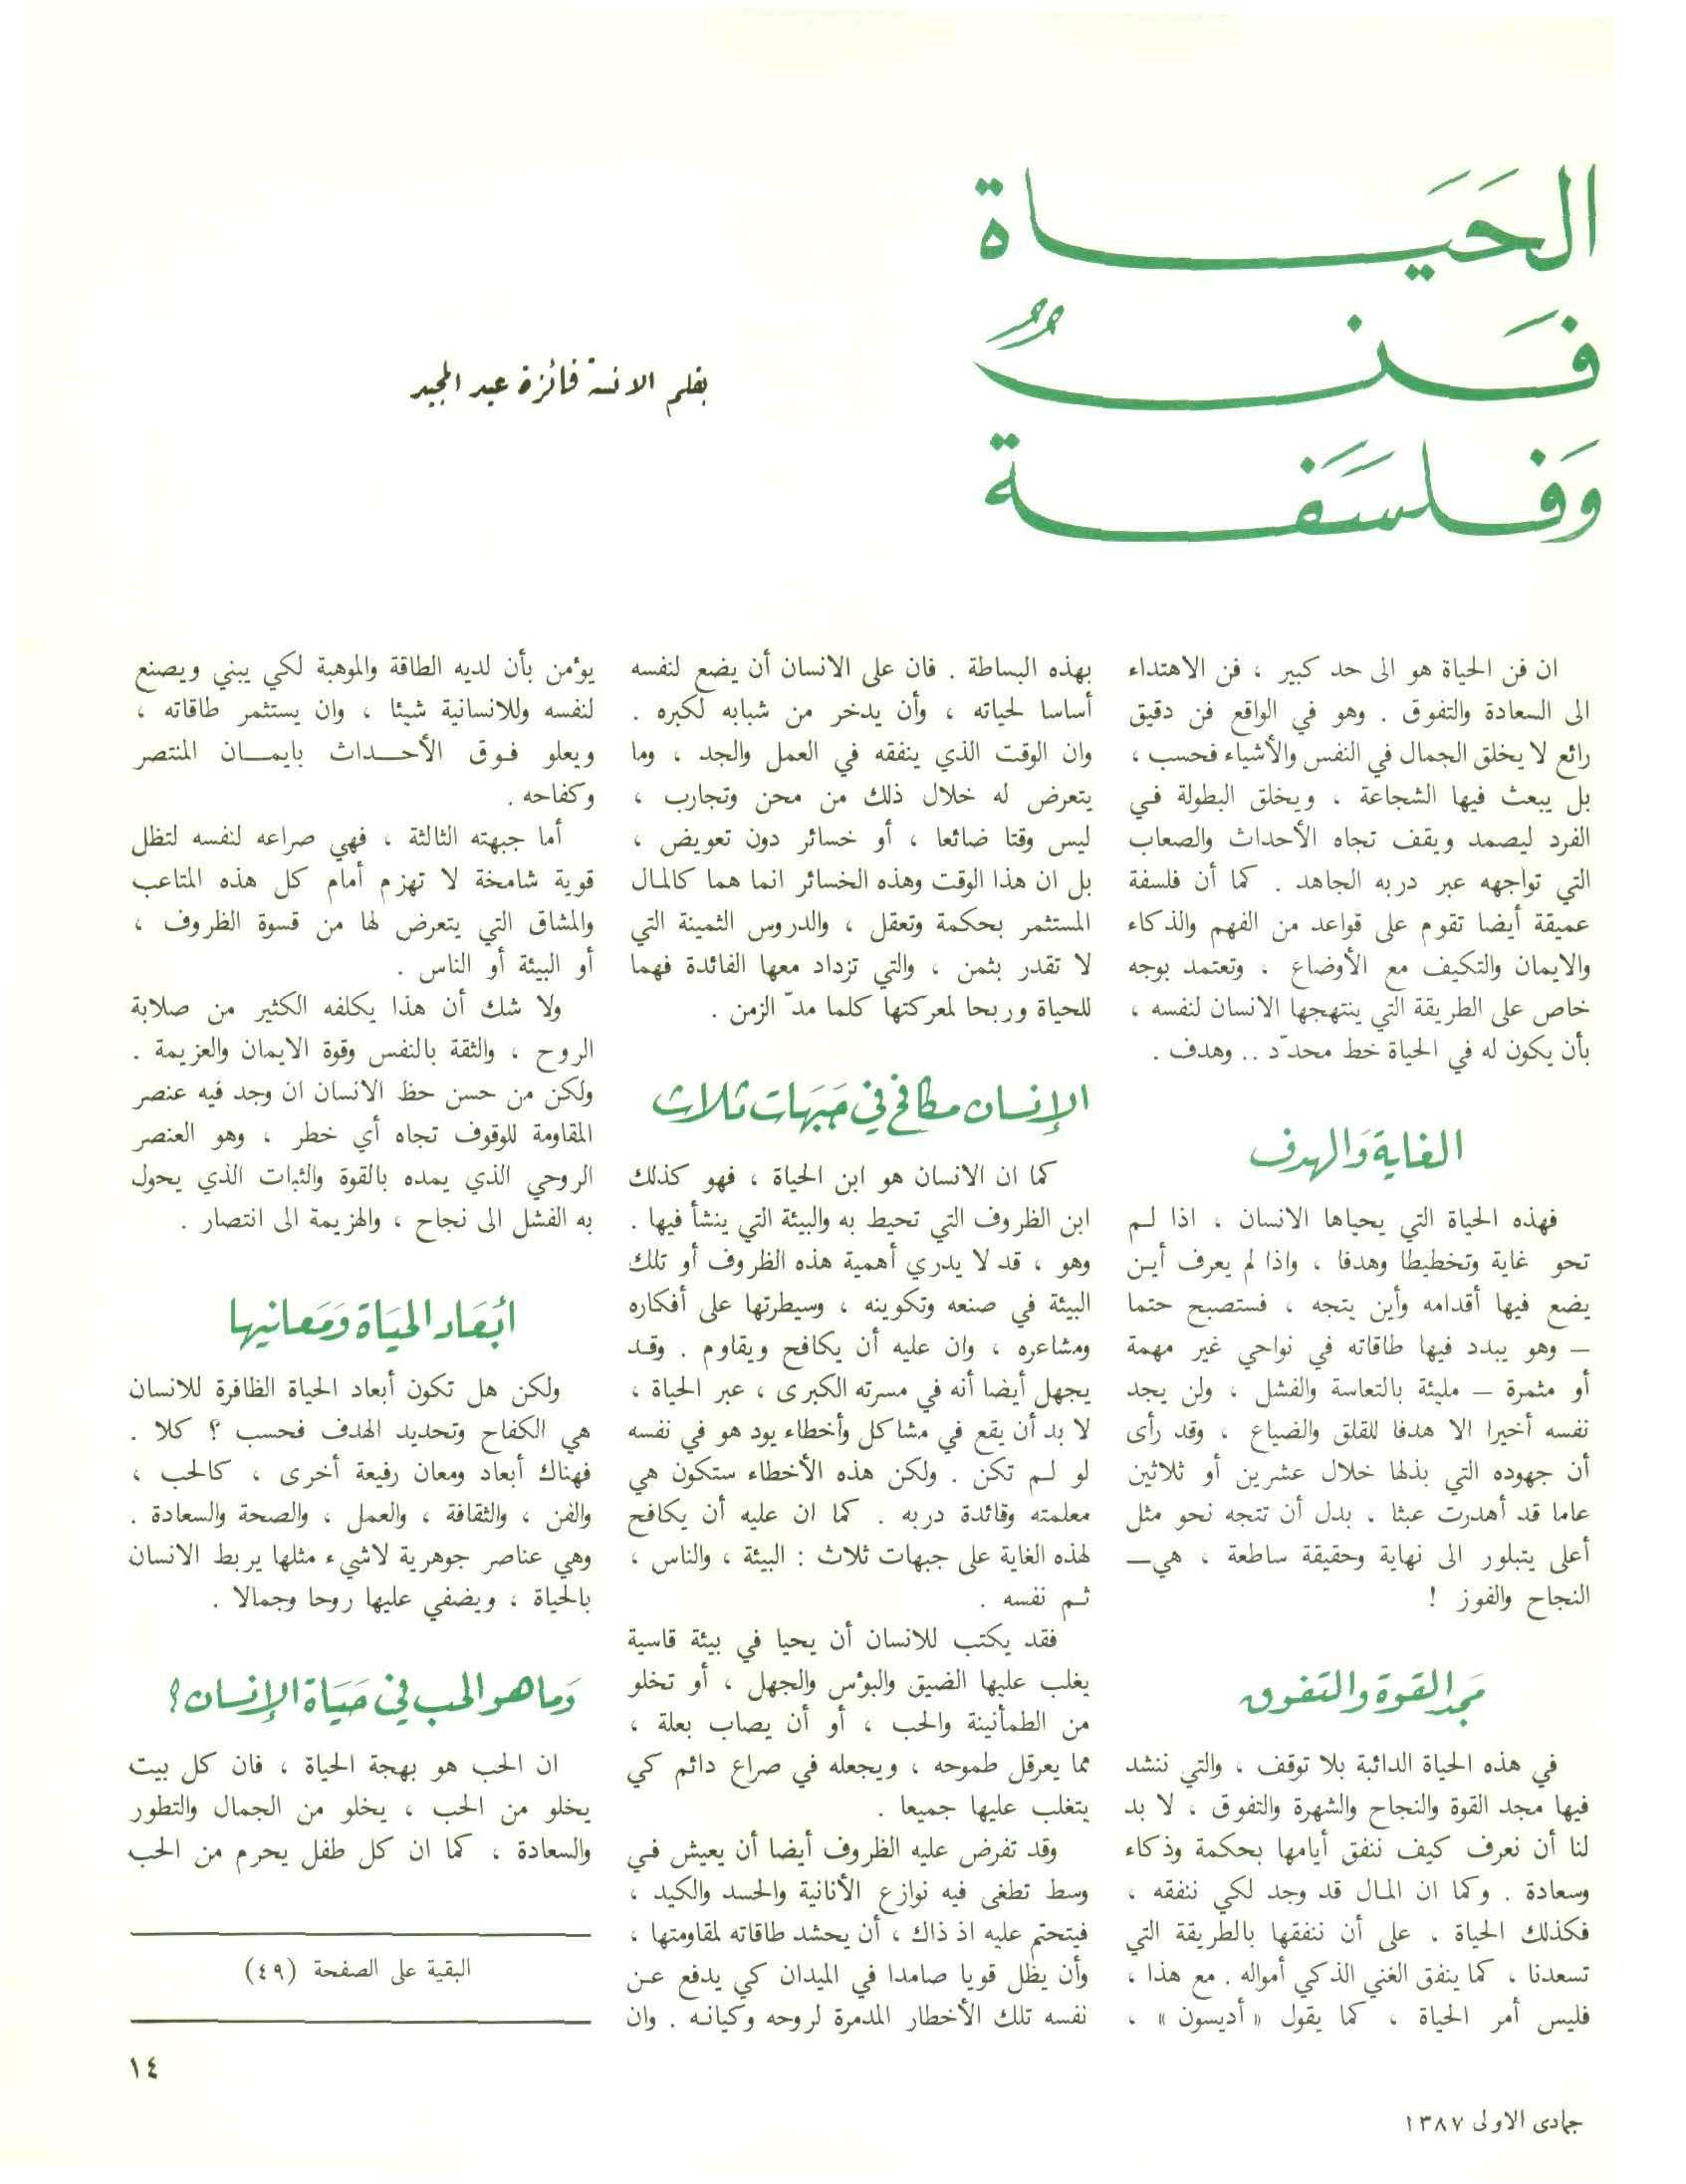 الحَيَاة
فَنٌّ
وَفلسَفة
بقلم الانسة فائزة عبد المجيد
ان فن الحياة هو الى حد كبير ، فن الاهتداء
الى السعادة والتفوق . وهو في الواقع فن دقيق
رائع لا يخلق الجمال في النفس والأشياء فحسب ،
بل يبعث فيها الشجاعة ، ويخلق البطولة في
الفرد ليصمد ويقف تجاه الأحداث والصعاب
التي تواجهه عبر دربه الجاهد . كما أن فلسفة
عميقة أيضا تقوم على قواعد من الفهم والذكاء
والايمان والتكيف مع الأوضاع ، وتعتمد بوجه
خاص على الطريقة التي ينتهجها الانسان لنفسه ،
بأن يكون له في الحياة خط محدّد .. وهدف .
الغاية وَالهدف
فهذه الحياة التي يحياها الانسان ، اذا لم
تحو غاية وتخطيطا وهدفا ، واذا لم يعرف أين
يضع فيها أقدامه وأين يتجه ، فستصبح حتما
– وهو يبدد فيها طاقاته في نواحي غير مهمة
أو مثمرة – مليئة بالتعاسة والفشل ، ولن يجد
نفسه أخيرا الا هدفا للقلق والضياع ، وقد رأى
أن جهوده التي بذلها خلال عشرين أو ثلاثين
عاما قد أهدرت عبثا ، بدل أن تتجه نحو مثل
أعلى يتبلور الى نهاية وحقيقة ساطعة ، هي–
النجاح والفوز !
مجد القوة والتفوق
في هذه الحياة الدائبة بلا توقف ، والتي ننشد
فيها مجد القوة والنجاح والشهرة والتفوق ، لا بد
لنا أن نعرف كيف ننفق أيامها بحكمة وذكاء
وسعادة . وكما ان المال قد وجد لكي ننفقه ،
فكذلك الحياة ، على أن ننفقها بالطريقة التي
تسعدنا ، كما ينفق الغني الذكي أمواله . مع هذا ،
فليس أمر الحياة ، كما يقول « أديسون » ،
بهذه البساطة . فان على الانسان أن يضع لنفسه
أساسا لحياته ، وأن يدخر من شبابه لكبره .
وان الوقت الذي ينفقه في العمل والجد ، وما
يتعرض له خلال ذلك من محن وتجارب ،
ليس وقتا ضائعا ، أو خسائر دون تعويض ،
بل ان هذا الوقت وهذه الخسائر انما هما كالمال
المستثمر بحكمة وتعقل ، والدروس الثمينة التي
لا تقدر بثمن ، والتي تزداد معها الفائدة فهما
للحياة وربحا لمعركتها كلما مدّ الزمن .
الإنسان مكافح في جَبَهات ثلاث
كما ان الانسان هو ابن الحياة ، فهو كذلك
ابن الظروف التي تحيط به والبيئة التي ينشأ فيها .
وهو ، قد لا يدري أهمية هذه الظروف أو تلك
البيئة في صنعه وتكوينه ، وسيطرتها على أفكاره
ومشاعره ، وان عليه أن يكافح ويقاوم . وقد
يجهل أيضا أنه في مسرته الكبرى ، عبر الحياة ،
لا بد أن يقع في مشاكل وأخطاء يود هو في نفسه
لو لم تكن . ولكن هذه الأخطاء ستكون هي
معلمته وقائدة دربه . كما ان عليه أن يكافح
لهذه الغاية على جبهات ثلاث : البيئة ، والناس ،
ثم نفسه .
فقد يكتب للانسان أن يحيا في بيئة قاسية
يغلب عليها الضيق والبؤس والجهل ، أو تخلو
من الطمأنينة والحب ، أو أن يصاب بعلة ،
مما يعرقل طموحه ، ويجعله في صراع دائم كي
يتغلب عليها جميعا .
وقد تفرض عليه الظروف أيضا أن يعيش في
وسط تطغى فيه نوازع الأنانية والحسد والكيد ،
فيتحتم عليه اذ ذاك ، أن يحشد طاقاته لمقاومتها ،
وأن يظل قويا صامدا في الميدان كي يدفع عن
نفسه تلك الأخطار المدمرة لروحه وكيانه . وان
يؤمن بأن لديه الطاقة والموهبة لكي يبني ويصنع
لنفسه وللانسانية شيئا ، وان يستثمر طاقاته ،
ويعلو فوق الأحداث بايمان المنتصر
وكفاحه .
أما جبهته الثالثة ، فهي صراعه لنفسه لتظل
قوية شامخة لا تهزم أمام كل هذه المتاعب
والمشاق التي يتعرض لها من قسوة الظروف ،
أو البيئة أو الناس .
ولا شك أن هذا يكلفه الكثير من صلابة
الروح ، والثقة بالنفس وقوة الايمان والعزيمة .
ولكن من حسن حظ الانسان ان وجد فيه عنصر
المقاومة للوقوف تجاه أي خطر ، وهو العنصر
الروحي الذي يمده بالقوة والثبات الذي يحول
به الفشل الى نجاح ، والهزيمة الى انتصار .
أبعَاد الحيَاة وَمَعانيها
ولكن هل تكون أبعاد الحياة الظافرة للانسان
هي الكفاح وتحديد الهدف فحسب ؟ كلا .
فهناك أبعاد ومعان رفيعة أخرى ، كالحب ،
والفن ، والثقافة ، والعمل ، والصحة والسعادة .
وهي عناصر جوهرية لاشيء مثلها يربط الانسان
بالحياة ، ويضفي عليها روحا وجمالا .
وَما هو الحب في حيَاة الإنسان ؟
ان الحب هو بهجة الحياة ، فان كل بيت
يخلو من الحب ، يخلو من الجمال والتطور
والسعادة ، كما ان كل طفل يحرم من الحب
البقية على الصفحة (٤٩)
١٤
جمادى الاولى ١٣٨٧